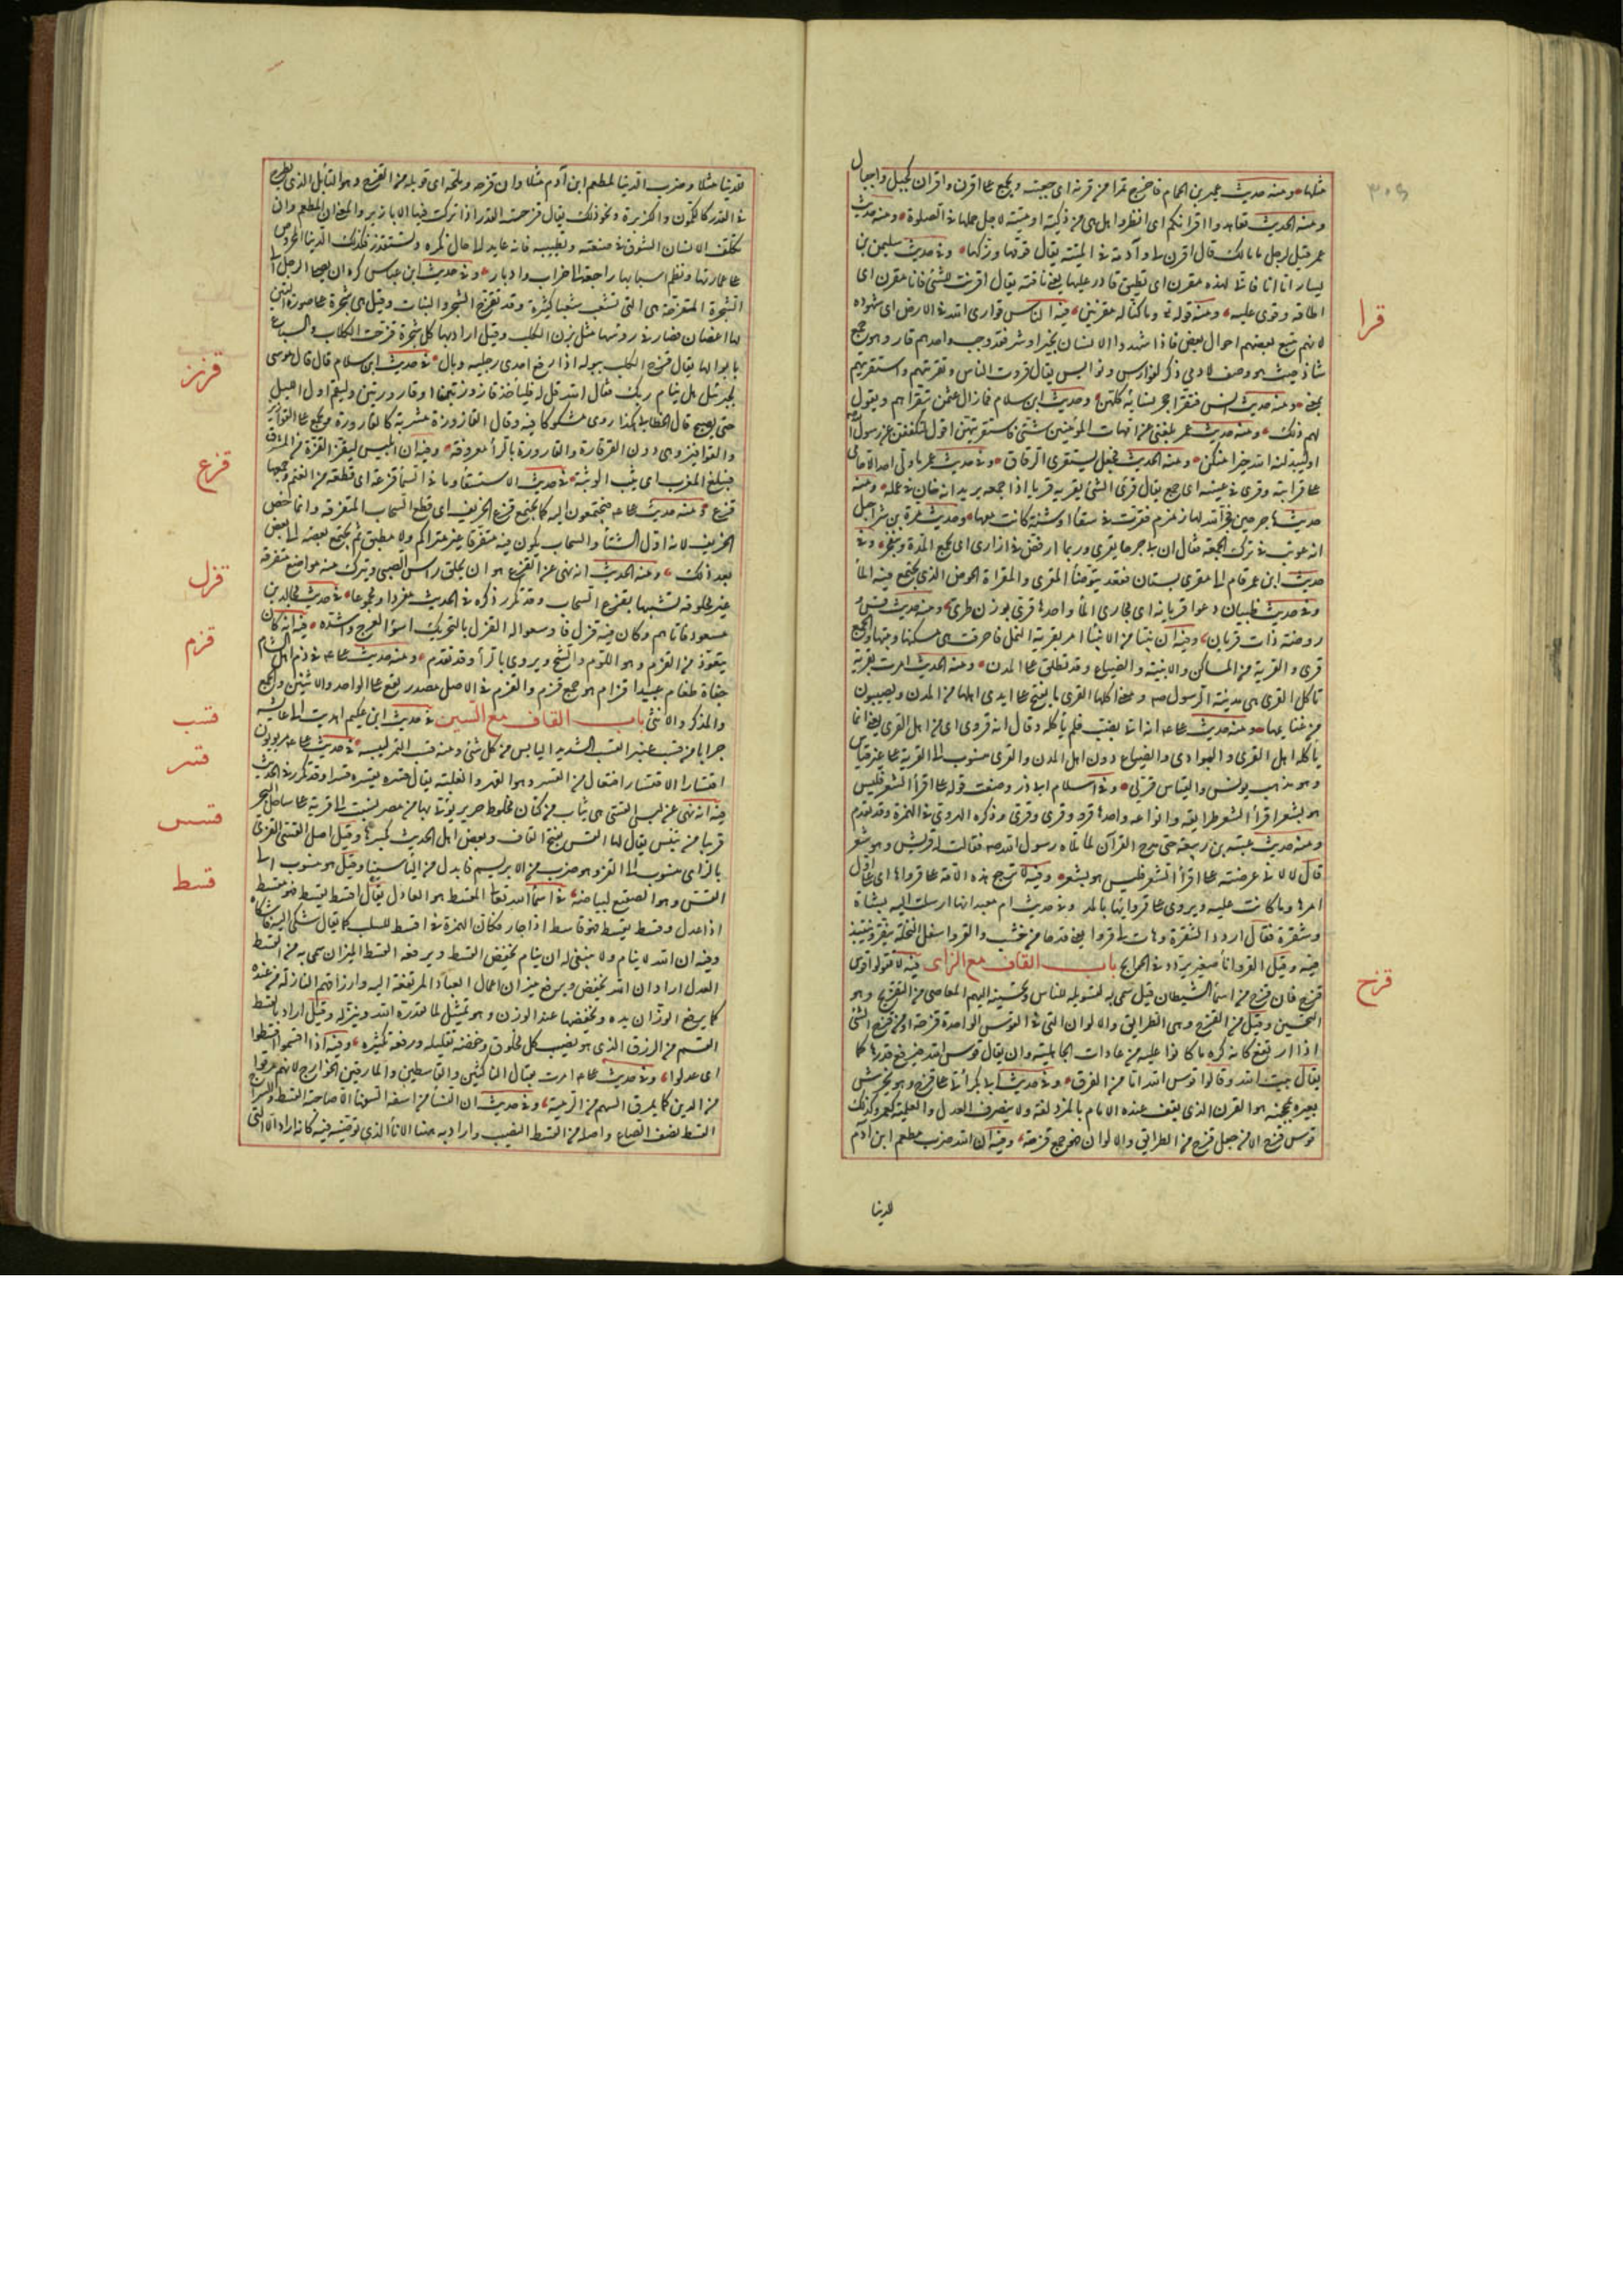 ٣٠٩
مثلها ومنه حديث عمير بن الحمام فاخرج تمرا من قرنه اي جعبته ويجمع على اقرن واقران كجبل واجبال
ومنه الحديث تعاهدوا اقرانكم اي انظروا اهل هي من ذكية او ميتة لاجل حملها في الصلوة ومنه حديث
عمر قيل لرجل ما مالك قال اقرن لي وآدمة في المنيئة يقال قومها وزكها وفي حديث سليمن بن
يسار اما انا فاني لهذه مقرن اي مطيق قادر عليها يعني ناقته يقال اقرنت للشئ فانا مقرن اي
اطاقه وقوي عليه ومنه قوله تع وما كنا له مقرنين فيه الناس قواري الله في الارض اي شهوده
قرا
لانهم يتبع بعضهم احوال بعض فاذا شهدوا الانسان بخير او شر فقد وجب واحدهم قار وهو جمع
شاذ حيث هو وصف لادمي ذكر كفوارس ونواكس يقال قروت الناس وتقريتهم واستقريتهم
بمعنى ومنه حديث انس فتقرا حجر نسائه كلهن وحديث ابن سلام فما زال عثمن يتقراهم ويقول
لهم ذلك ومنه حديث عمر بلغني عن امهات المؤمنين شئ فاستقريتهن اقول لتكففن عن رسول الله
او ليبدلنه الله خيرا منكن ومنه الحديث فجعل يستقري الرفاق وفي حديث عمر ما ولي احد الا حامى
على قرابته وقرى في عيبته اي جمع يقال قرى الشئ يقريه قريا اذا جمعه يريد انه خان في عمله ومنه
حديث هاجر حين فجر الله لها زمزم فقرت في سقاء او شنة كانت معها وحديث مرة بن شراحيل
انه عوتب في ترك الجمعة فقال ان بي جرحا يقري وربما ارفض في ازاري اي يجمع المدة وينفجر وفي
حديث ابن عمر قام الى مقرى بستان فقعد يتوضأ المقرى والمقراة الحوض الذي يجتمع فيه الماء
وفي حديث ظبيان رعوا قريانه اي مجاري الماء واحدها قري بوزن طري ومنه حديث قس و
روضة ذات قريان وفيه ان نبيا من الانبياء امر بقرية النمل فاحرقت هي مسكنها وبيتها والجمع
قرى والقرية من المساكن والابنية والضياع وقد تطلق على المدن ومنه الحديث امرت بقرية
تاكل القرى هي مدينة الرسول صم ومعنى اكلها القرى ما يفتح على ايدي اهلها من المدن ويصيبون
من غنايمها ومنه حديث علي انه اتي بضب فلم يأكله وقال انه قروي اي من اهل القرى يعني انما
ياكله اهل القرى والبوادي والضياع دون اهل المدن والقروي منسوب الى القرية على غير قياس
وهو مذهب يونس والقياس قريي وفي اسلام ابي ذر وضعت قوله على اقراء الشعر فليس
هو بشعر اقراء الشعر طرايقه وانواعه واحدها قرو وقري وقرى وذكره الهروي في الهمزة وقد تقدم
ومنه حديث عتبة بن ربيعة حين مدح القرآن لما تلاه رسول الله صم فقالت له قريش وهو شعر
قال لا لاني عرضته على اقراء الشعر فليس هو بشعر وفيه لا ترجع هذه الامة على قرواها اي على اول
امرها وما كانت عليه ويروى على قروائها بالمد وفي حديث ام معبد انها ارسلت اليه بشاة
وشفرة فقال اردد الشفرة وهات لي قروا يعني قدحا من خشب والقرو اسفل النخلة ينقر وينتبذ
فيه وقيل القرو اناء صغير يردد في الحوائج باب القاف مع الزاى فيه لا تقولوا قوس
قزح
قزح فان قزح من اسماء الشيطان قيل سمي به لتسويله للناس وتحسينه اليهم المعاصي من التقزيح وهو
التحسين وقيل من القزح وهي الطرايق والالوان التي في القوس الواحدة قزحة او من قزح الشئ
اذا ارتفع كانه كره ما كانوا عليه من عادات الجاهلية وان يقال قوس الله فيرفع قدرها كما
يقال بيت الله وقالوا قوس الله امان من الغرق وفي حديث ابي بكر انه اتى على قزح وهو يخرش
بعيره بمحجنه هو القرن الذي يقف عنده الامام بالمزدلفة ولا ينصرف للعدل والعلمية كعمر وكذلك
قوس قزح الا من جعل قزح من الطرائق والالوان فهو جمع قزحة وفيه ان الله ضرب مطعم ابن آدم
للدنيا
للدنيا مثلا وضرب الدنيا لمطعم ابن آدم مثلا وان قزحه وملحه اي توبله من القزح وهو التابل الذي يطرح
في القدر كالكمون والكزبرة ونحو ذلك يقال قزحت القدر اذا تركت فيها الابازير والمعنى ان المطعم وان
تكلف الانسان التنوق في صنعته وتطييبه فانه عايد الى حال تكره وتستقذر فكذلك الدنيا المحروص
على عمارتها ونظم اسبابها راجعة الى خراب وادبار وفي حديث ابن عباس كره ان يصلي الرجل الى
الشجرة المقزحة هي التي تشعبت شعبا كثيرة وقد تقزح الشجر والنبات وقيل هي شجرة على صورة التين
لها اغصان قصار في رؤسها مثل برثن الكلب وقيل اراد بها كل شجرة قزحت الكلاب والسباع
بابوالها يقال قزح الكلب ببوله اذا رفع احدى رجليه وبال في حديث ابن سلام قال قال موسى
قزز
لجبرئيل هل ينام ربك فقال الله قل له فليأخذ قازوزتين او قارورتين وليقم اول الليل
حتى يصبح قال الخطابي هكذا روي مشكوكا فيه وقال القازوزة مشربة كالقارورة ويجمع على القوازيز
والقواقيز وهي دون القرقارة والقارورة بالراء معروفة وفيه ان ابليس ليقز القزة من المشرق
قزع
فيبلغ المغرب اي يثب الوثبة في حديث الاستسقاء وما في السماء قزعة اي قطعة من الغيم وجمعها
قزع ومنه حديث علي فيجتمعون اليه كما يجتمع قزع الخريف اي قطع السحاب المتفرقة وانما خص
الخريف لانه اول الشتاء والسحاب يكون فيه متفرقا غير متراكم ولا مطبق ثم يجتمع بعضه الى بعض
بعد ذلك ومنه الحديث انه نهى عن القزع هو ان يحلق راس الصبي ويترك منه مواضع متفرقة
قزل
غير محلوقة تشبيها بقزع السحاب وقد تكرر ذكره في الحديث مفردا ومجموعا في حديث مجالد بن
مسعود فاتاهم وكان فيه قزل فاوسعوا له القزل بالتحريك اسوأ العرج واشده فيه انه كان
قزم
يتعوذ من القزم وهو اللؤم والشح ويروى بالراء وقد تقدم ومنه حديث علي في ذم اهل الشام
جفاة طغام عبيد اقزام هو جمع قزم والقزم في الاصل مصدر يقع على الواحد والاثنين والجمع
قسب
والمذكر والانثى باب القاف مع السين في حديث ابن عكيم اهديت الى عائشة
جرابا من قسب عنبر القسب الشديد اليابس من كل شئ ومنه قسب التمر ليبسه في حديث علي مربوبون
قسر
اقتسارا الاقتسار افتعال من القسر وهو القهر والغلبة يقال قسره يقسره قسرا وقد تكرر في الحديث
قسس
فيه انه نهى عن لبس القسي هي ثياب من كتان مخلوط بحرير يؤتى بها من مصر نسبت الى قرية على ساحل البحر
قريبا من تنيس يقال لها القس بفتح القاف وبعض اهل الحديث يكسرها وقيل اصل القسي القزي
بالزاى منسوب الى القز وهو ضرب من الابريسم فابدل من الزاى سينا وقيل هو منسوب الى
قسط
القس وهو الصقيع لبياضه في اسماء الله تعالى المقسط هو العادل يقال اقسط يقسط فهو مقسط
اذا عدل وقسط يقسط فهو قاسط اذا جار فكأن الهمزة في اقسط للسلب كما يقال شكى اليه فاشكاه
وفيه ان الله لا ينام ولا ينبغي له ان ينام يخفض القسط ويرفعه القسط الميزان سمي به من القسط
العدل اراد ان الله يخفض ويرفع ميزان اعمال العباد المرتفعة اليه وارزاقهم النازلة من عنده
كما يرفع الوزان يده ويخفضها عند الوزن وهو تمثيل لما يقدره الله وينزله وقيل اراد بالقسط
القسم من الرزق الذي هو نصيب كل مخلوق وخفضه تقليله ورفعه تكثيره وفيه اذا قسموا اقسطوا
اى عدلوا وفي حديث علي امرت بقتال الناكثين والقاسطين والمارقين الخوارج لانهم مرقوا
من الدين كما يمرق السهم من الرمية وفي حديث ان النساء من اسفه السفهاء الا صاحبة القسط والسراج
القسط نصف الصاع واصله من القسط النصيب واراد به هنا الاناء الذي توضئه فيه كانه اراد الا التي